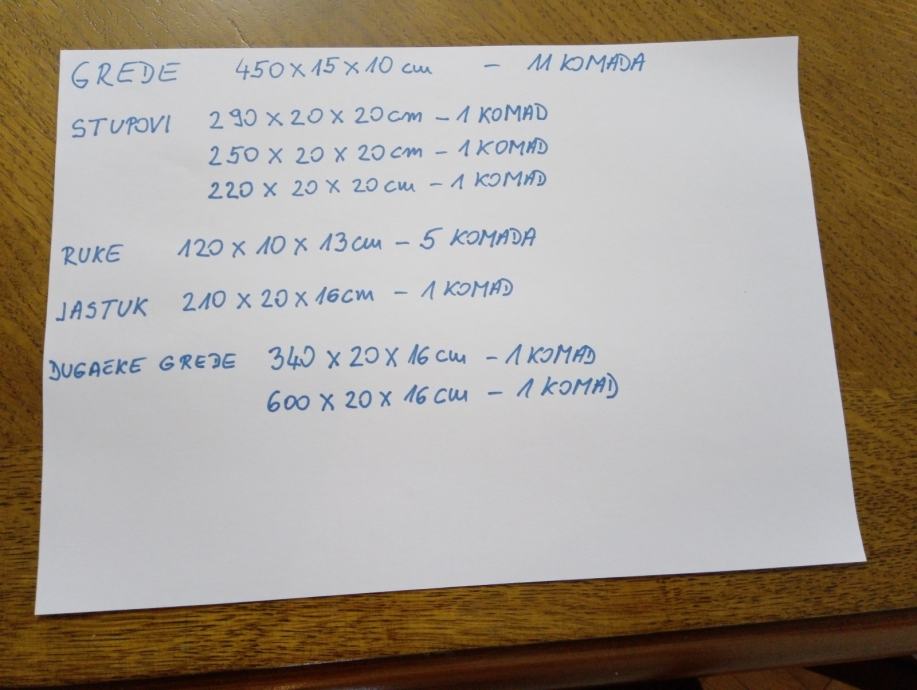 GREDE 450 x 15 x 10 cm - 11 KOMADA
STUPOVI 290 x 20 x 20 cm - 1 KOMAD
250 x 20 x 20 cm - 1 KOMAD
220 x 20 x 20 cm - 1 KOMAD
RUKE 120 x 10 x 13 cm - 5 KOMADA
JASTUK 210 x 20 x 16 cm - 1 KOMAD
DUGAČKE GREDE 340 x 20 x 16 cm - 1 KOMAD
600 x 20 x 16 cm - 1 KOMAD